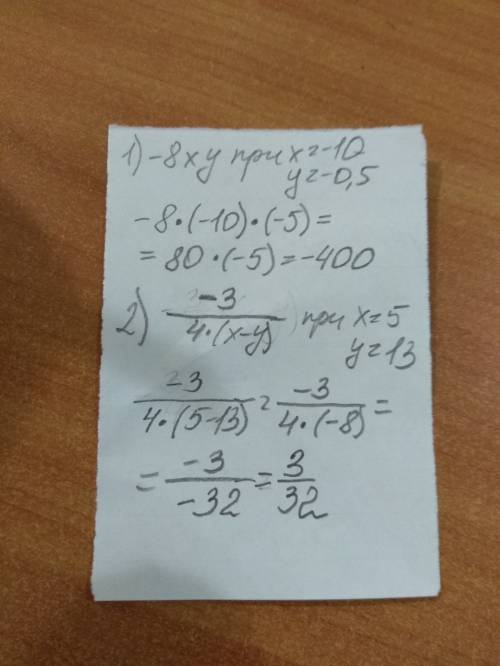 1) -8xy при x=-10
y=-0,5
-8·(-10)·(-5)=
=80·(-5)=-400
2) -3/4·(x-y) при x=5
y=13
-3/4·(5-13) = -3/4·(-8) =
= -3/-32 = 3/32